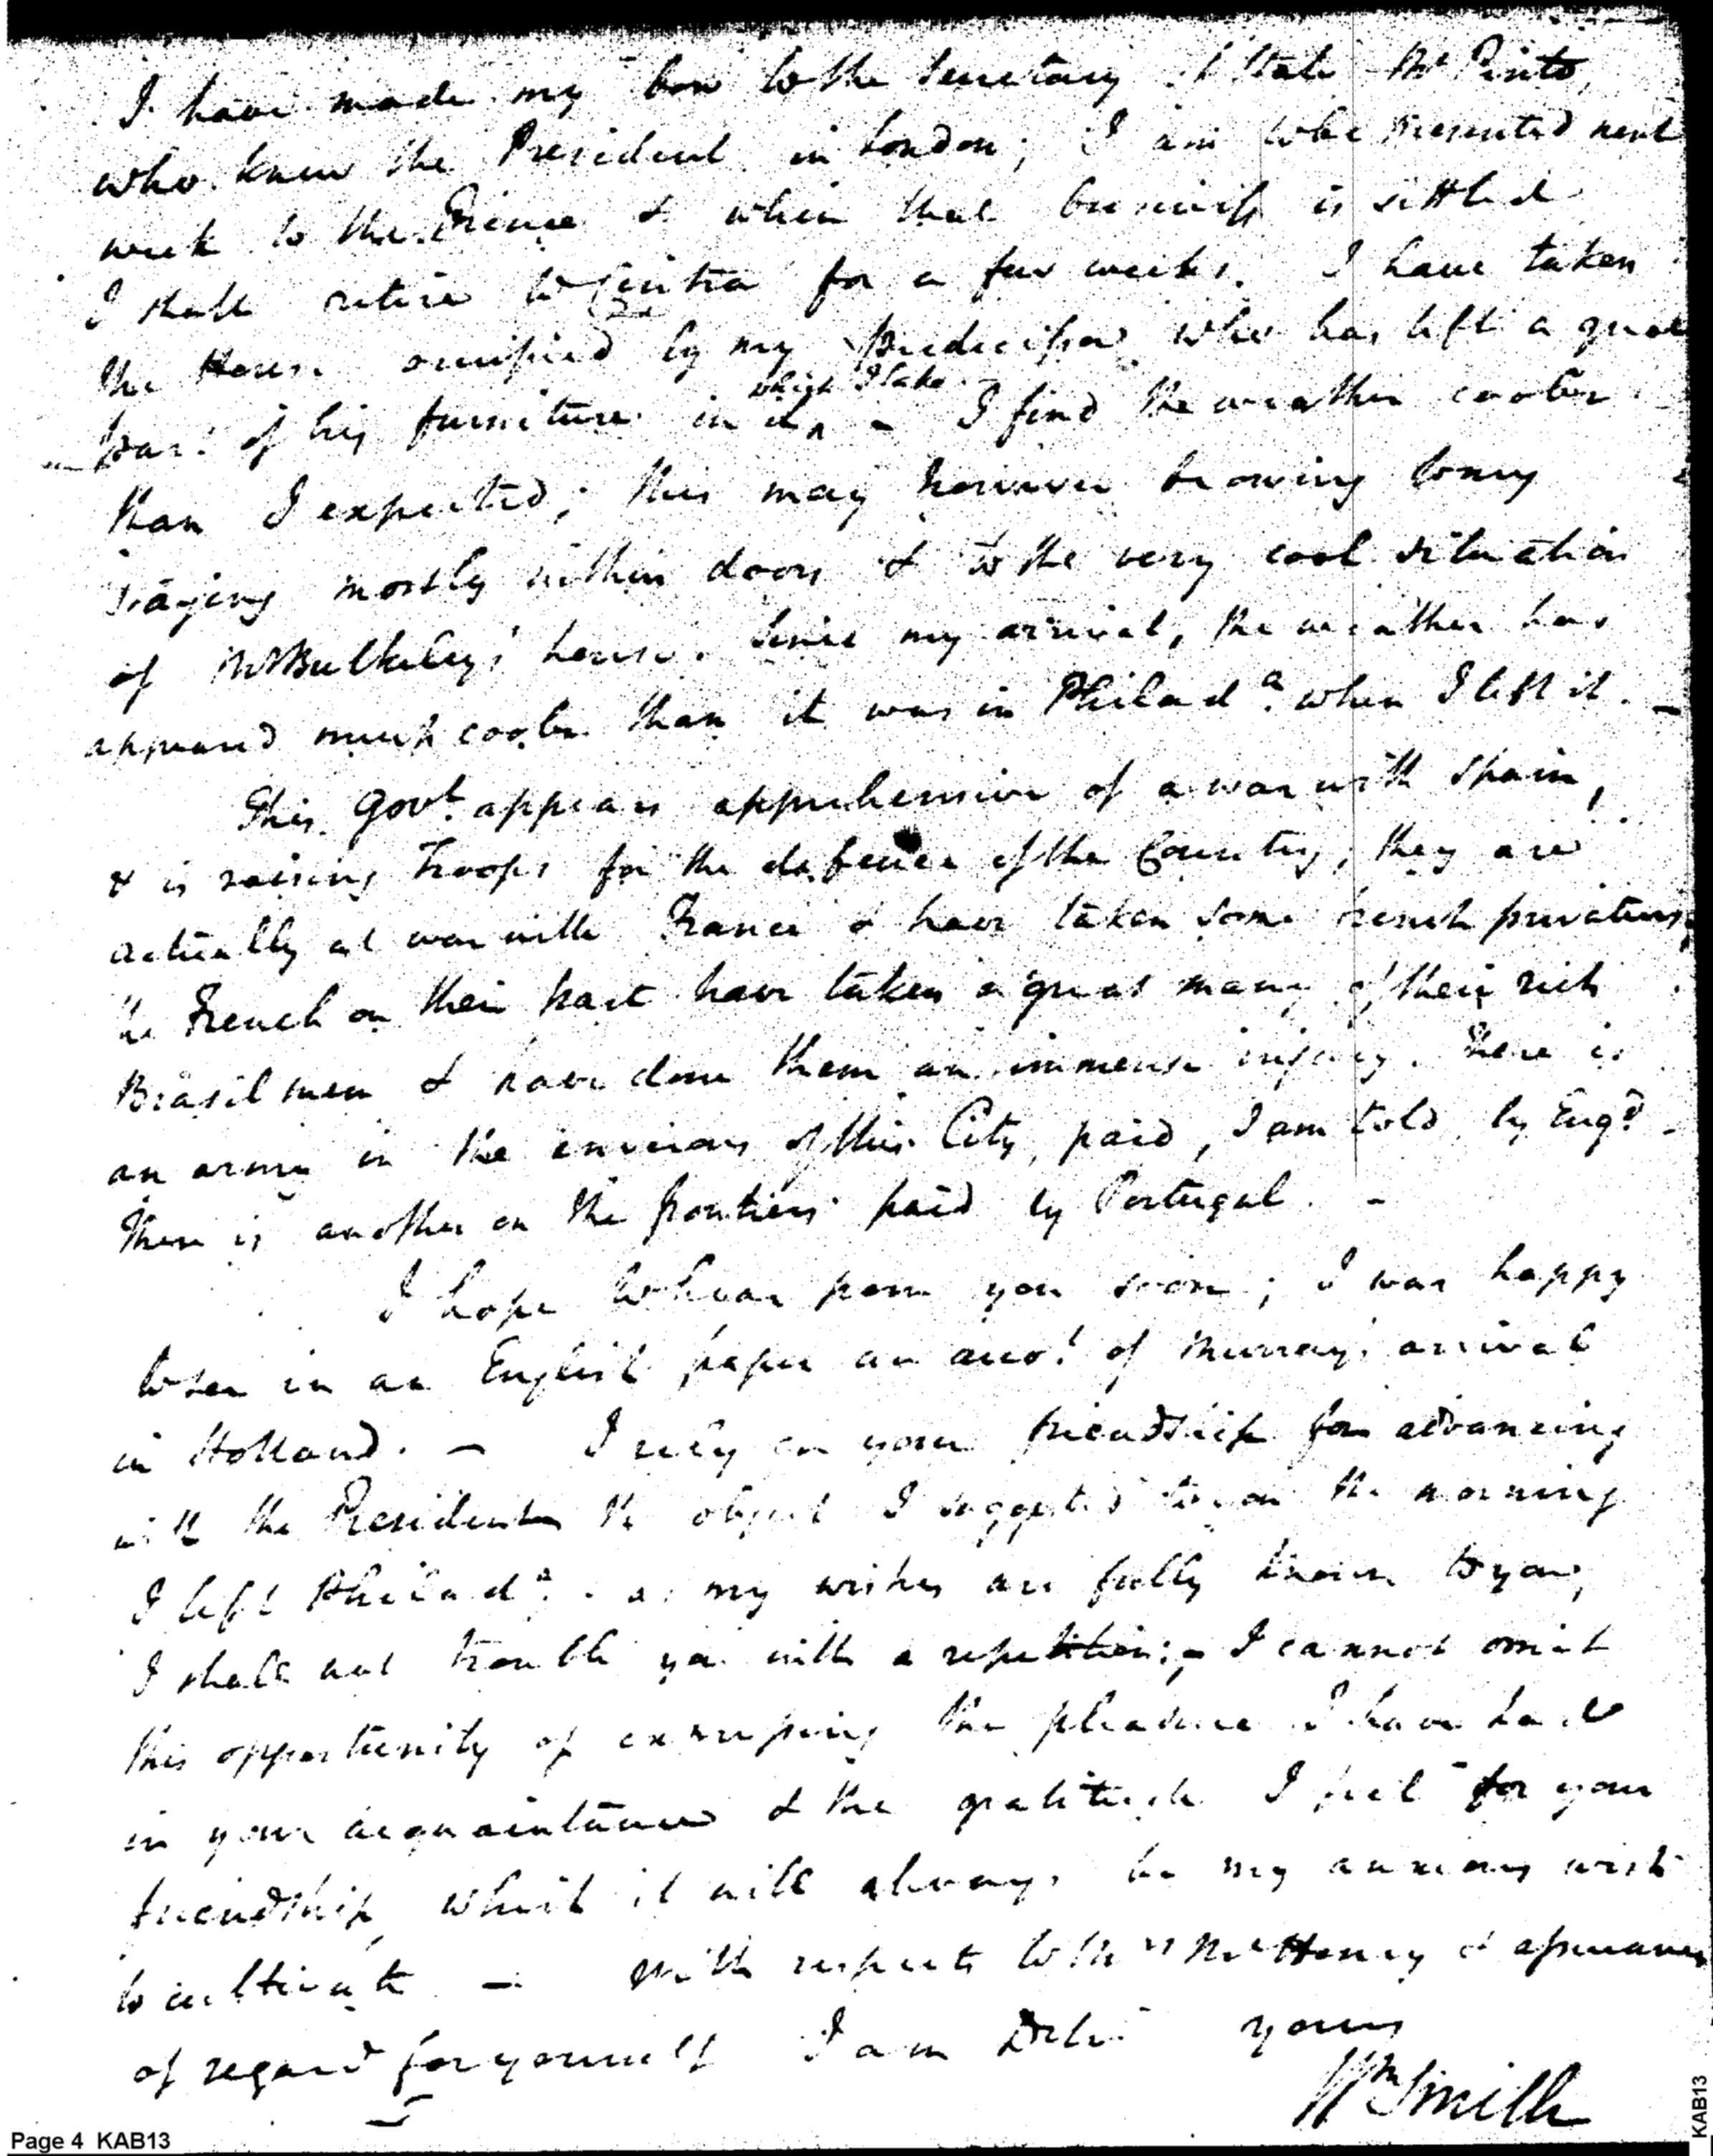 I have made my bow to the Secretary of State Mr Pinto,
who knew the President in London; I am to be presented next
week to the Prince & when that business is settled
I shall retire to Cintra for a few weeks. I have taken
the House occupied by my predecessor who has left a great
part of his furniture in it ^ which I take. - I find the weather cooler
than I expected; this may however be owing to my
staying mostly within doors & to the very cool situation
of Mr Bulkeley's house. Since my arrival, the weather has
appeared much cooler than it was in Philada. when I left it. -
This Govt. appears apprehensive of a war with Spain,
& is raising Troops for the defence of the Country; they are
actually at war with France & have taken some french privateers;
the French on their part have taken a great many of their rich
Brasil men & have done them an immense injury. There is
an army in the environs of this City, paid, I am told by Engd. -
There is another on the frontiers paid by Portugal. -
I hope to hear from you soon; I was happy
to see in an English paper an acct. of Murray's arrival
in Holland. - I rely on your friendship for advancing
with the President the object I suggested to you the morning
I left Philada. as my wishes are fully known to you,
I shall not trouble you with a repetition; - I cannot omit
this opportunity of expressing the pleasure I have had
in your acquaintance & the gratitude I feel for your
friendship, which it will always be my anxious wish
to cultivate - With respects to Mrs McHenry & assurances
of regard for yourself I am Dr Sir yours
Wm Smith
Page 4 KAB13
KAB13